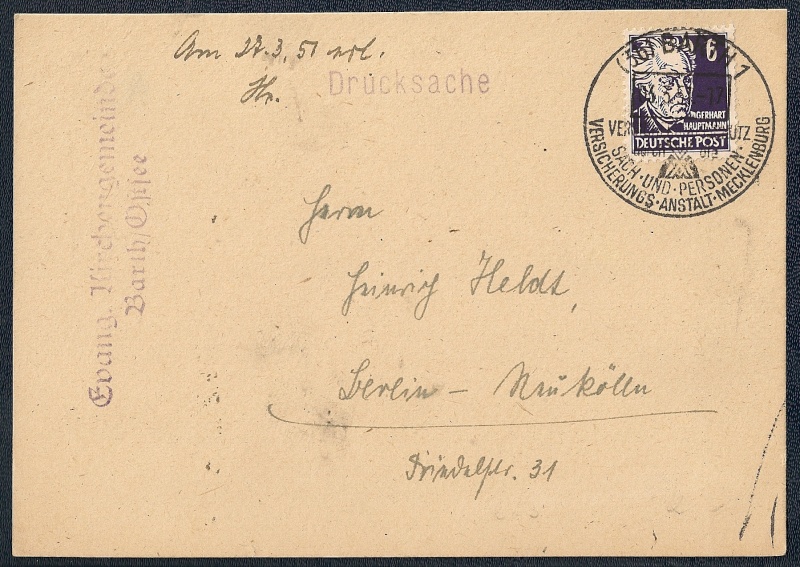 Am 27.3.51 erl.
Hr.
Drucksache
Evang. Kirchengemeinde
Barth/Ostsee
6
GERHART
HAUPTMANN
DEUTSCHE POST
SACH-UND-PERSONEN-
VERSICHERUNGS-ANSTALT-MECKLENBURG
Herrn
Heinrich Heldt,
Berlin – Neukölln
Friedelstr. 31